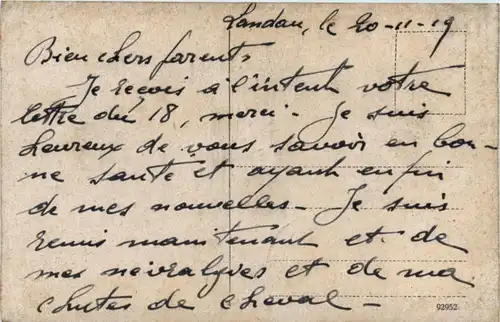 Landau, le 20-11-19
Bien chers parents,
Je reçois à l'intent votre
lettre du 18, merci - Je suis
heureux de vous savoir en bon-
ne santé et ayant enfin
de mes nouvelles - Je suis
remis maintenant et de
mes névralgies et de ma
chutes de cheval -
92952